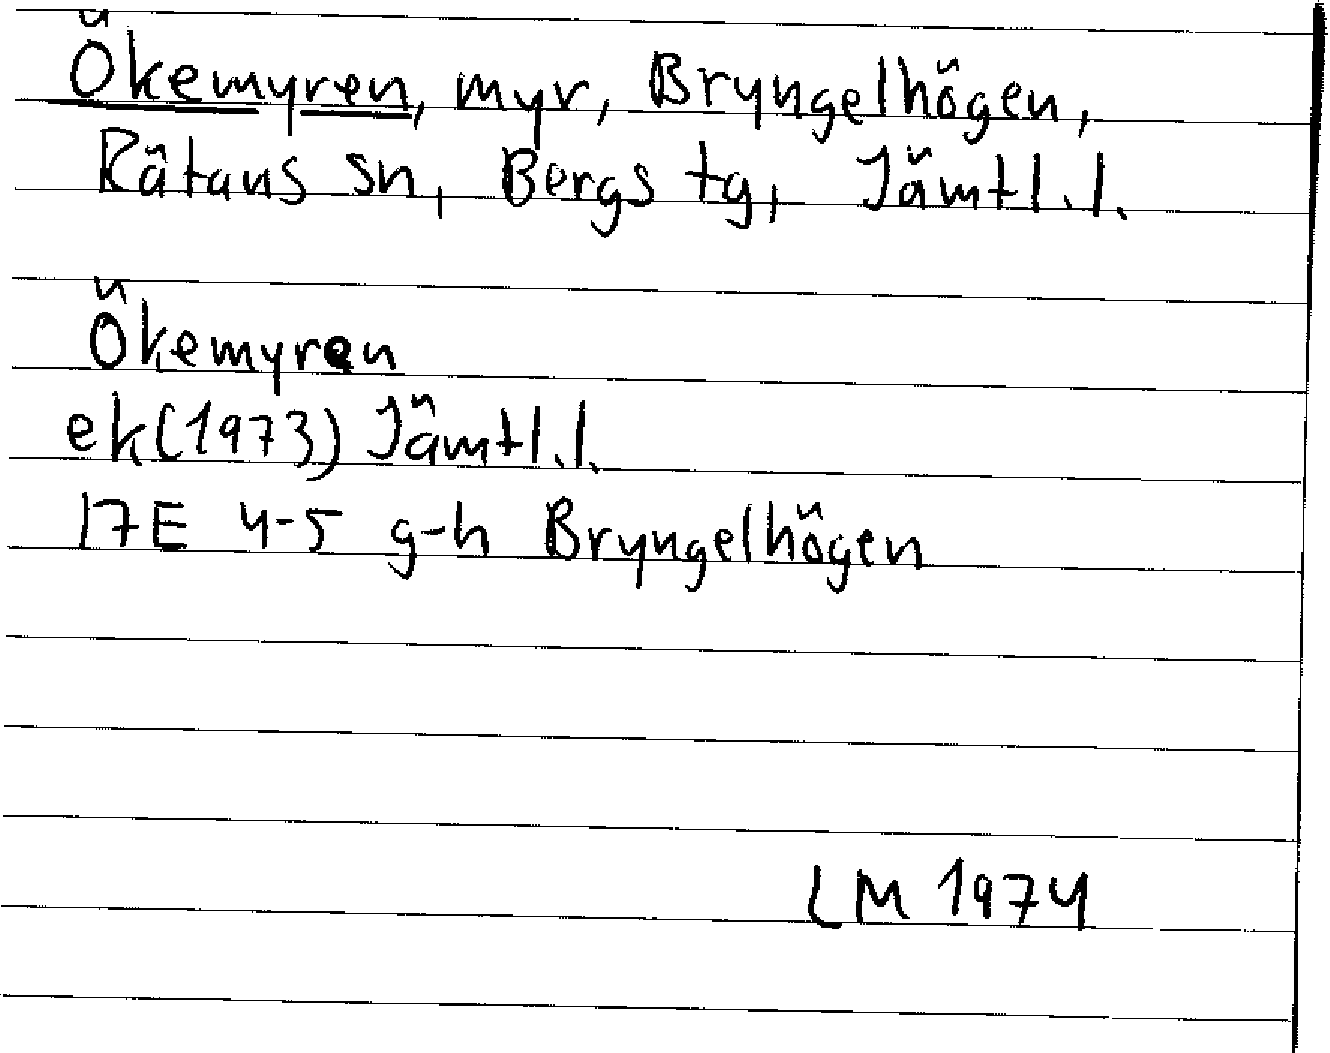 Ökemyren, myr, Bryngelhögen,
Rätans sn, Bergs tg, Jämtl.l.
Ökemyren
ek(1973) Jämtl.l.
17E 4-5 g-h Bryngelhögen
LM 1974